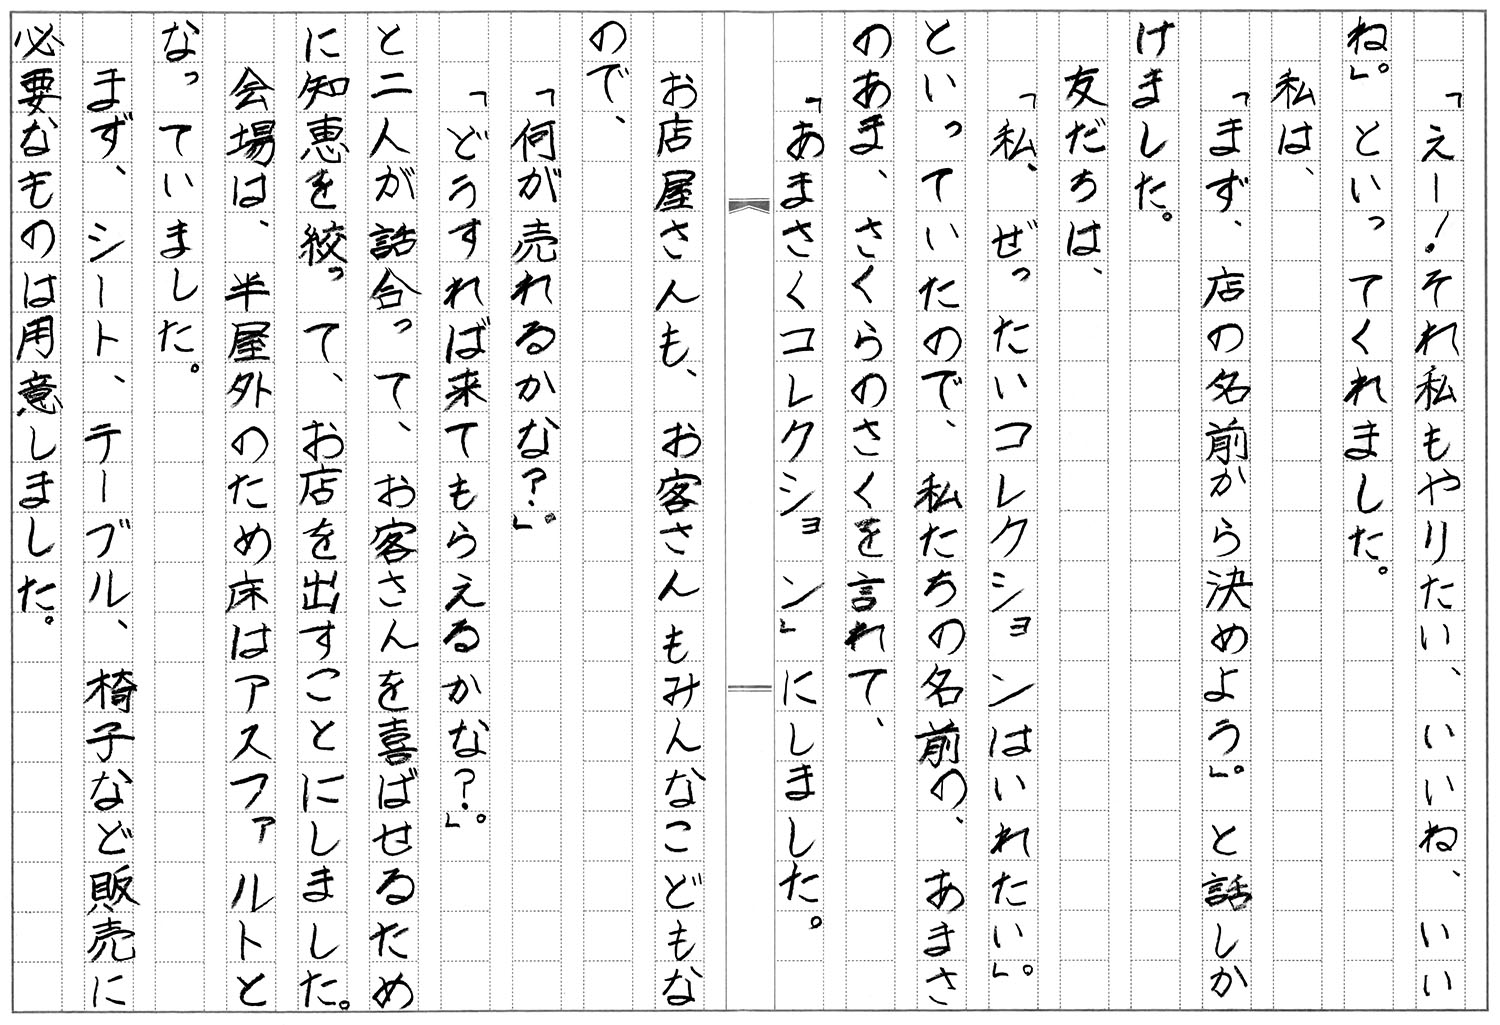 「えー!それ私もやりたい、いいね、いい
ね」。といってくれました。
私は、
「まず、店の名前から決めよう」。と話しか
けました。
友だちは、
「私、ぜったいコレクションはいれたい」。
といっていたので、私たちの名前の、あまさ
のあま、さくらのさくを言れて、
「あまさくコレクション」にしました。
お店屋さんも、お客さんもみんなこどもな
ので、
「何が売れるかな?」。
「どうすれば来てもらえるかな?」。
と二人が話合って、お客さんを喜ばせるため
に知恵を絞って、お店を出すことにしました。
会場は、半屋外のため床はアスファルトと
なっていました。
まず、シート、テーブル、椅子など販売に
必要なものは用意しました。